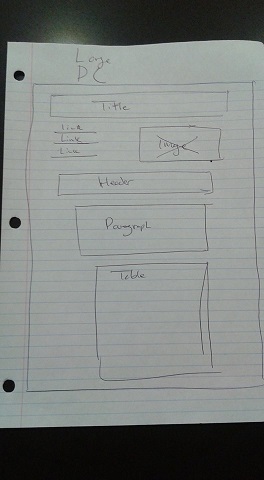 Large
Title
Link
Link
Link
Image
Header
Paragraph
Table